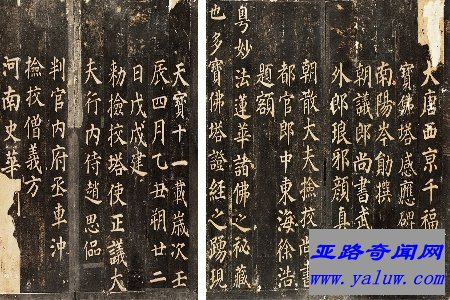 大唐西京千福
寶佛塔感應碑
南陽岑勛撰
朝議郎尚書武
外郎琅邪顏真
朝散大夫撿校尚書
都官郎中東海徐浩
題額
粵妙法蓮華諸佛之秘藏
也多寶佛塔證經之踴現
天寶十一載歲次壬
辰四月乙丑朔廿二
日戊戌建
勅撿校塔使正議大
夫行內侍趙思偘
判官內府丞車沖
撿校僧義方
河南史華
亚路奇闻网
www.yaluw.com